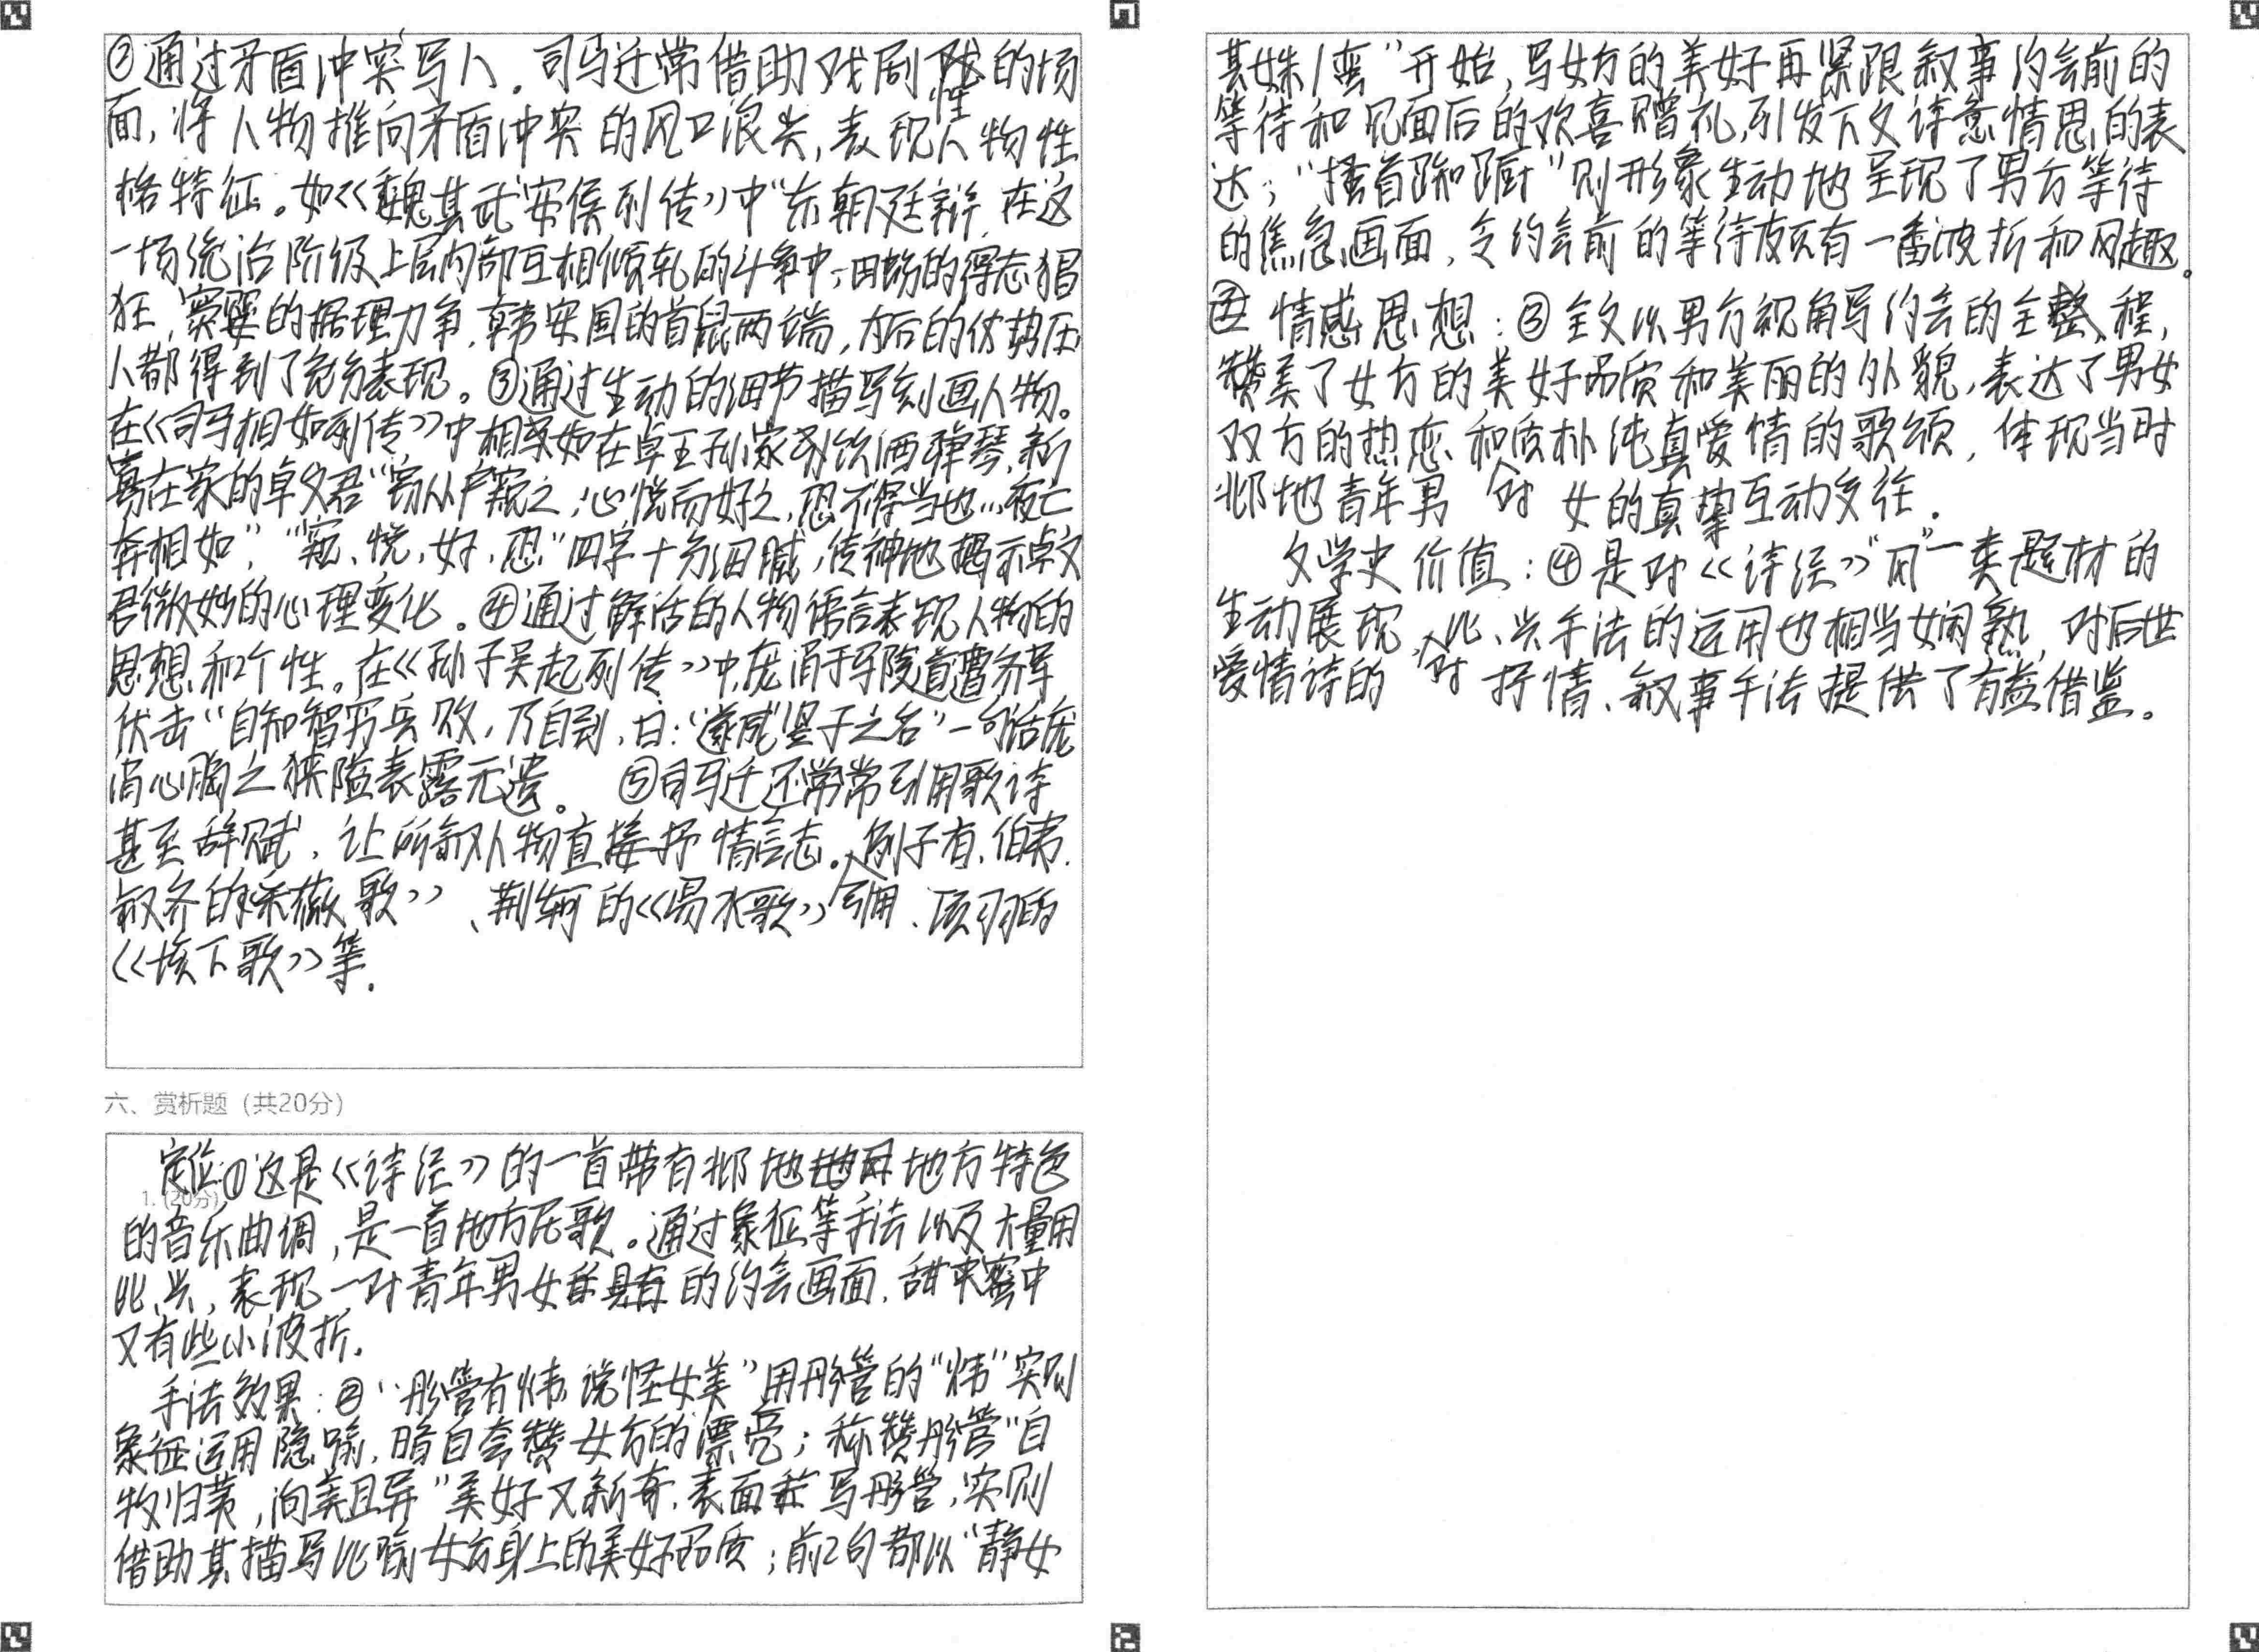 ②通过矛盾冲突写人。司马迁常借助戏剧性的场
面,将人物推向矛盾冲突的风口浪尖,表现人物性
格特征。如《魏其武安侯列传》中"东朝廷辩,在这
一场统治阶级上层内部互相倾轧的斗争中,田蚡的得志猖
狂,窦婴的据理力争,韩安国的首鼠两端,太后的仗势压
人都得到了充分表现。③通过生动的细节描写刻画人物。
在《司马相如列传》中相如在卓王孙家饮酒弹琴,新
寡在家的卓文君"窃从户窥之,心悦而好之,恐不得当也…夜亡
奔相如","窥、悦、好、恐"四字十分细腻,传神地揭示卓文
君微妙的心理变化。④通过鲜活的人物语言表现人物的
思想和个性。在《孙子吴起列传》中,庞涓于军险首遭齐军
伏击"自知智穷兵败,乃自刭,曰:"遂成竖子之名"一句话庞
涓心胸之狭隘表露无遗。 ⑤司马迁还常常引用歌诗
甚至辞赋,让所叙人物直接抒情言志。引用例子有、伯夷、
叔齐的采薇歌》、荆轲的《易水歌》、项羽的
《垓下歌》等.
六、赏析题(共20分)
1. (20分)
定位:①这是《诗经》的一首带有邶地地方特色
的音乐曲调,是一首地方民歌。通过象征等手法以及大量用
比、兴,表现一对青年男女的约会画面,甜蜜中
又有些小波折.
手法效果:②"彤管有炜,说怿女美"用彤管的"炜"实则
象征运用隐喻,暗自夸赞女方的漂亮;称赞彤管"自
牧归荑,洵美且异"美好又新奇,表面写彤管,实则
借助其描写比喻女方身上的美好品质;前2句都以"静女
其姝/娈"开始,写女方的美好再紧跟叙事约会前的
等待和见面后的欢喜赠礼,引发下文诗意情思的表
达;"搔首踟蹰"则形象生动地呈现了男方等待
的焦急画面,令约会前的等待颇有一番波折和风趣。
情感思想:③全文以男方视角写约会的全程,
赞美了女方的美好品质和美丽的外貌,表达了男女
双方的热恋和对质朴纯真爱情的歌颂,体现当时
邶地青年男女的真挚互动交往.
文学史价值:④是对《诗经》"风"一类题材的
生动展现,比、兴手法的运用也相当娴熟,对后世
爱情诗的抒情、叙事手法提供了有益借鉴。